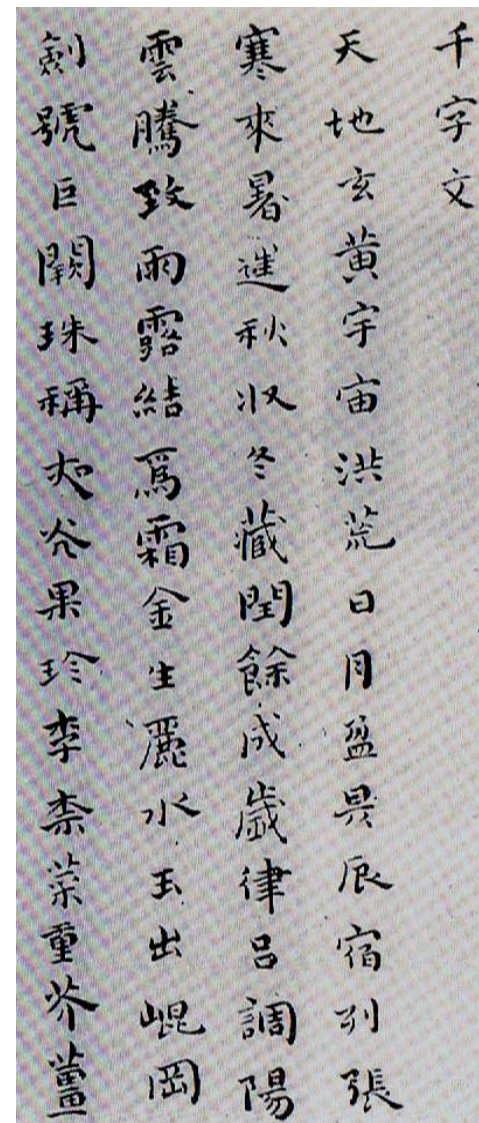 千字文
天地玄黃宇宙洪荒日月盈昃辰宿列張
寒來暑遙秋收冬藏閏餘成歲律呂調陽
雲騰致雨露結爲霜金生麗水玉出崐岡
劍號巨闕珠稱夜光果珍李柰菜重芥薑